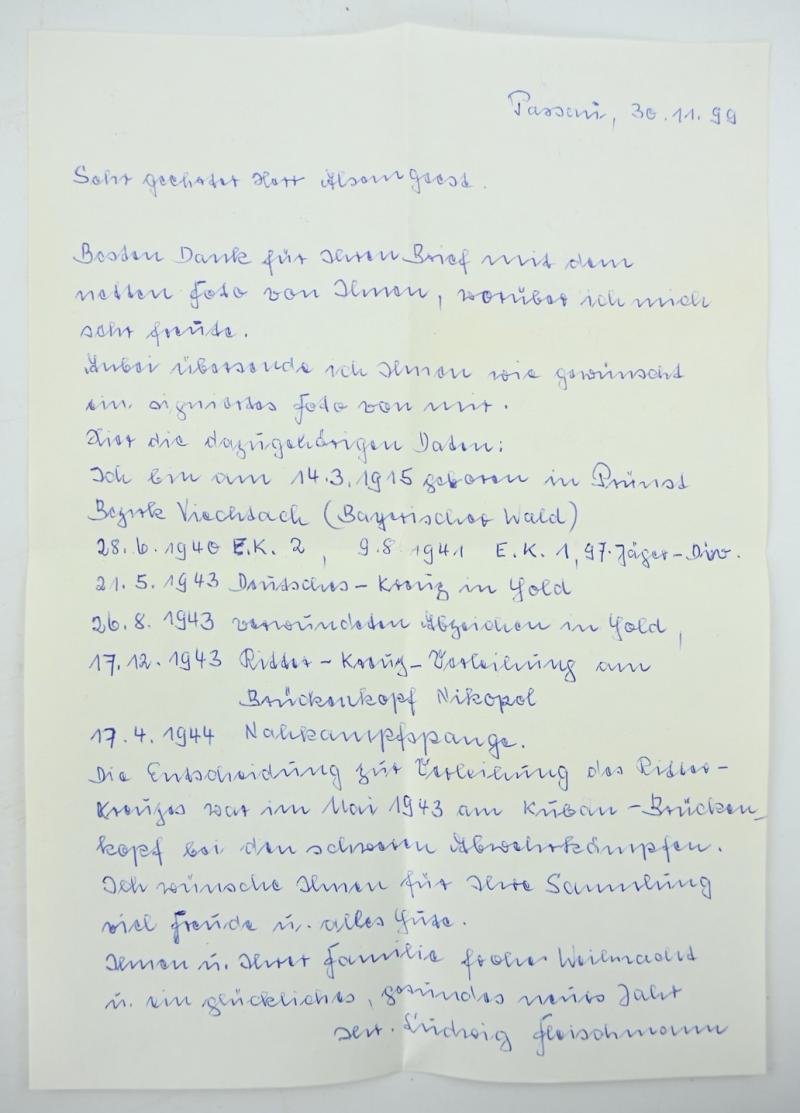 Passau, 30.11.99
Sehr geehrter Herr
Besten Dank für Ihren Brief mit dem
netten Foto von Ihnen, worüber ich mich
sehr freute.
Anbei übersende ich Ihnen wie gewünscht
ein signiertes Foto von mir.
Hier die dazugehörigen Daten:
Ich bin am 14.3.1915 geboren in Prünst
Bezirk Viechtach (Bayerischer Wald)
28.6.1940 E.K. 2, 9.8.1941 E.K. 1, 97. Jäger-Div.
21.5.1943 Deutsches-Kreuz in Gold
26.8.1943 verwundeten Abzeichen in Gold,
17.12.1943 Ritter-Kreuz-Verleihung am
Brückenkopf Nikopol
17.4.1944 Nahkampfspange.
Die Entscheidung zur Verleihung des Ritter-
Kreuzes war im Mai 1943 am Kuban-Brücken-
kopf bei den schweren Abwehrkämpfen.
Ich wünsche Ihnen für Ihre Sammlung
viel Freude u. alles Gute.
Ihnen u. Ihrer Familie frohe Weihnacht
u. ein glückliches, gesundes neues Jahr
Ihr. Ludwig Fleischmann